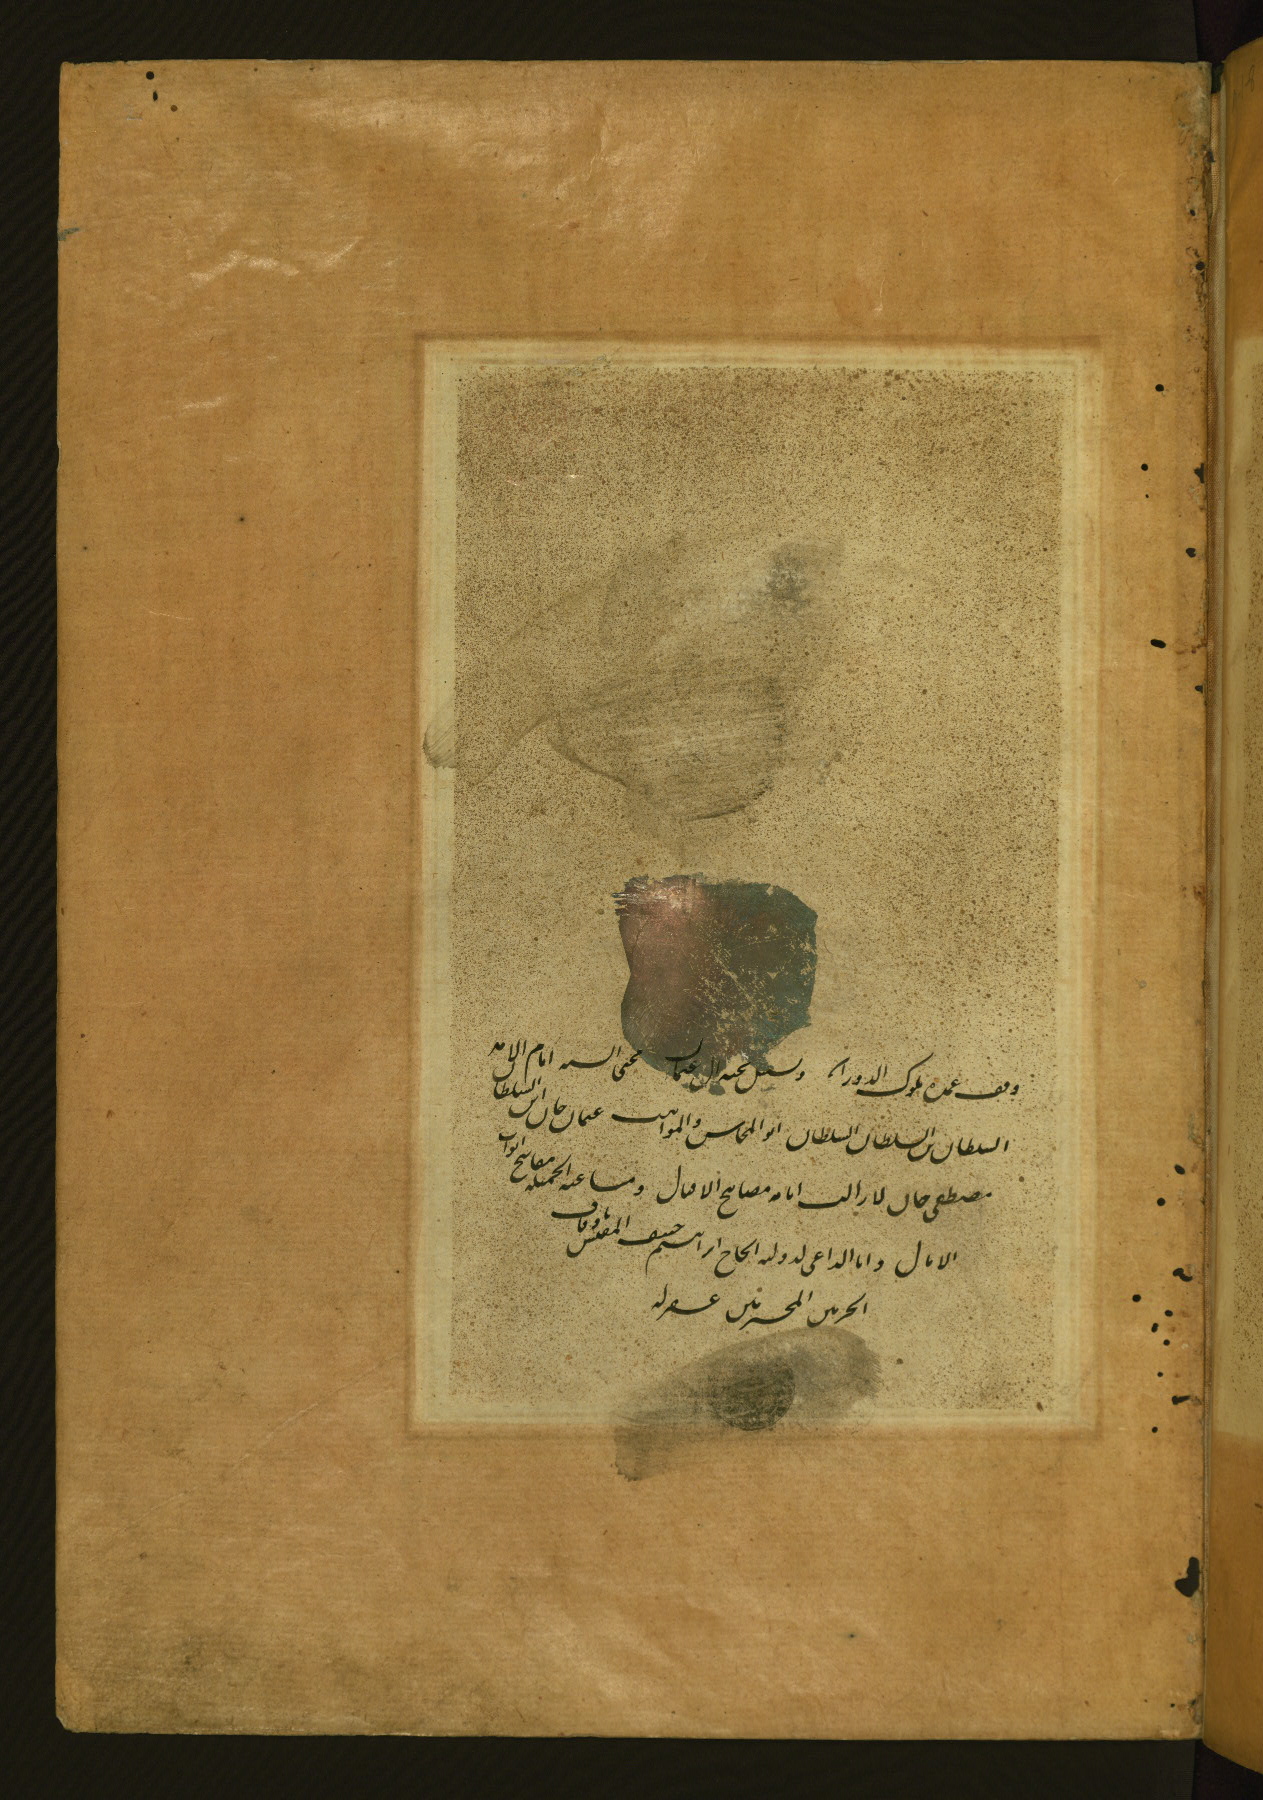 وقف عمدة ملوك الدوران وسلسل نخبة ال عثمان محيى السنه امام الامه
السلطان بن السلطان السلطان ابو المحاسن والمواهب عثمان خان ابن السلطان
مصطفى خان لا زالت ايامه مصابيح الاقبال ومساعيه الجميله مفاتيح ابواب
الامال وانا الداعى لدولته الحاج ابراهيم حنيف المفتش باوقاف
الحرمين المحترمين غفر له